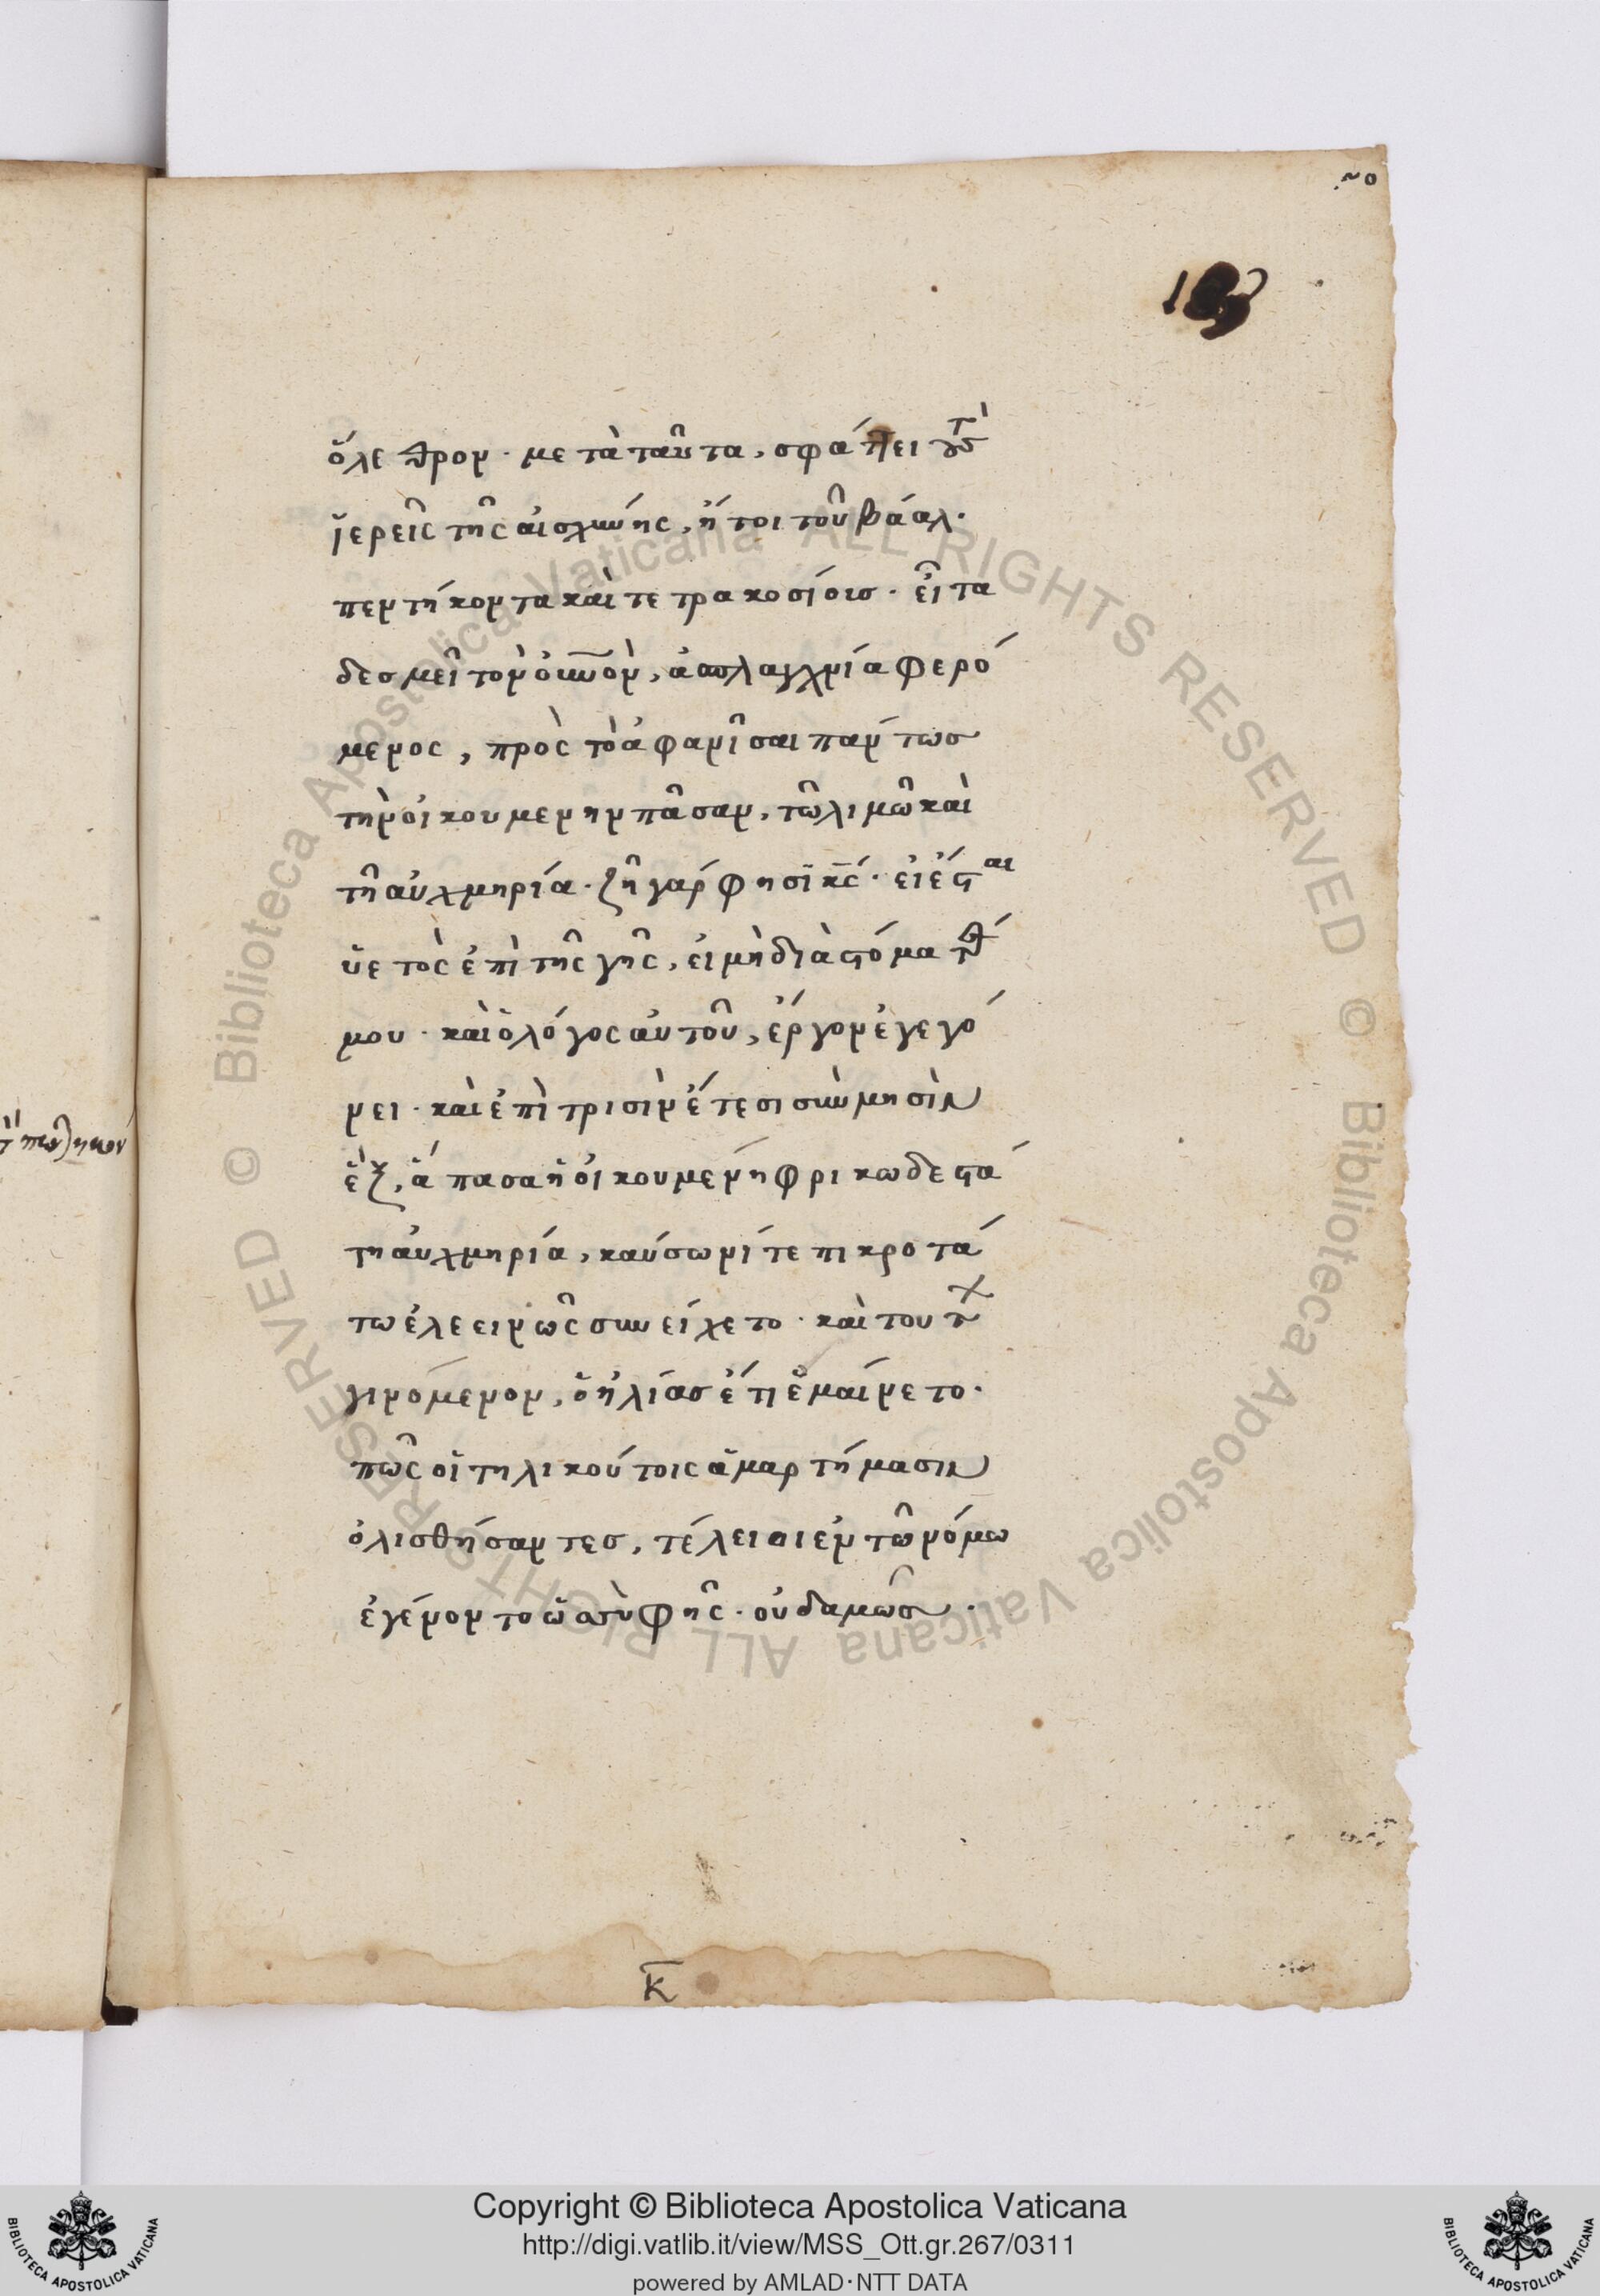 ὄλεθρον· μετὰ ταῦτα, σφάττει τοὺς
ἱερεῖς τῆς αἰσχύνης, ἤτοι τοῦ βάαλ·
πεντήκοντα καὶ τετρακοσίους· εἶτα
δεσμεῖ τὸν οὐνὸν, ἀσπλαγχνία φερό
μενος, πρὸς τὸ ἀφανῖσαι πάντως
τὴν οἰκουμενην πᾶσαν, τῶ λιμῶ καὶ
τῆ αὐχμηρία· ζῆ γάρ φησὶ κς· εἰ ἔσται
ὑετὸς ἐπὶ τῆς γῆς, εἰ μὴ διὰ στόματός
μου· καὶ ὁ λόγος αὐτοῦ, ἔργον ἐγεγό
νει· καὶ ἐπὶ τρισὶν ἔτεσι σὺν μησὶν
ἓξ, ἅπασα ἡ οἰκουμένη φρικωδεστά
τη αὐχμηρία, καύσωνί τε πικροτά
τω ἐλεεινῶς συνείχετο· καὶ τούτων
γινόμενον, ὁ ἠλίας ἔτι ἐμαίνετο·
πῶς οἱ τηλικούτοις ἁμαρτήμασιν
ὀλισθήσαντες, τέλειοι ἐν τῶ νόμω
ἐγένοντο ὡς σὺ φῆς· οὐδαμῶς·
κ
Copyright © Biblioteca Apostolica Vaticana
http://digi.vatlib.it/view/MSS_Ott.gr.267/0311
powered by AMLAD·NTT DATA
BIBLIOTECA APOSTOLICA VATICANA
BIBLIOTECA APOSTOLICA VATICANA
© Biblioteca Apostolica Vaticana ALL RIGHTS RESERVED © Biblioteca Apostolica Vaticana ALL RIGHTS RESERVED